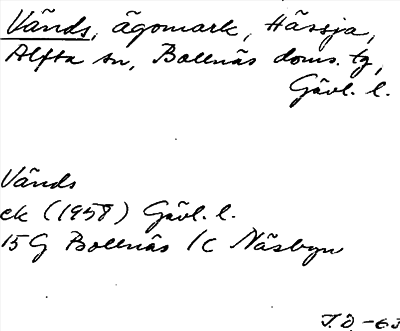 Vänds, ägomark, Hässja,
Alfta sn, Bollnäs doms. tg,
Gävl. l.
Vänds
ek (1958) Gävl. l.
15 G Bollnäs 1c Näsbyn
J.D -63